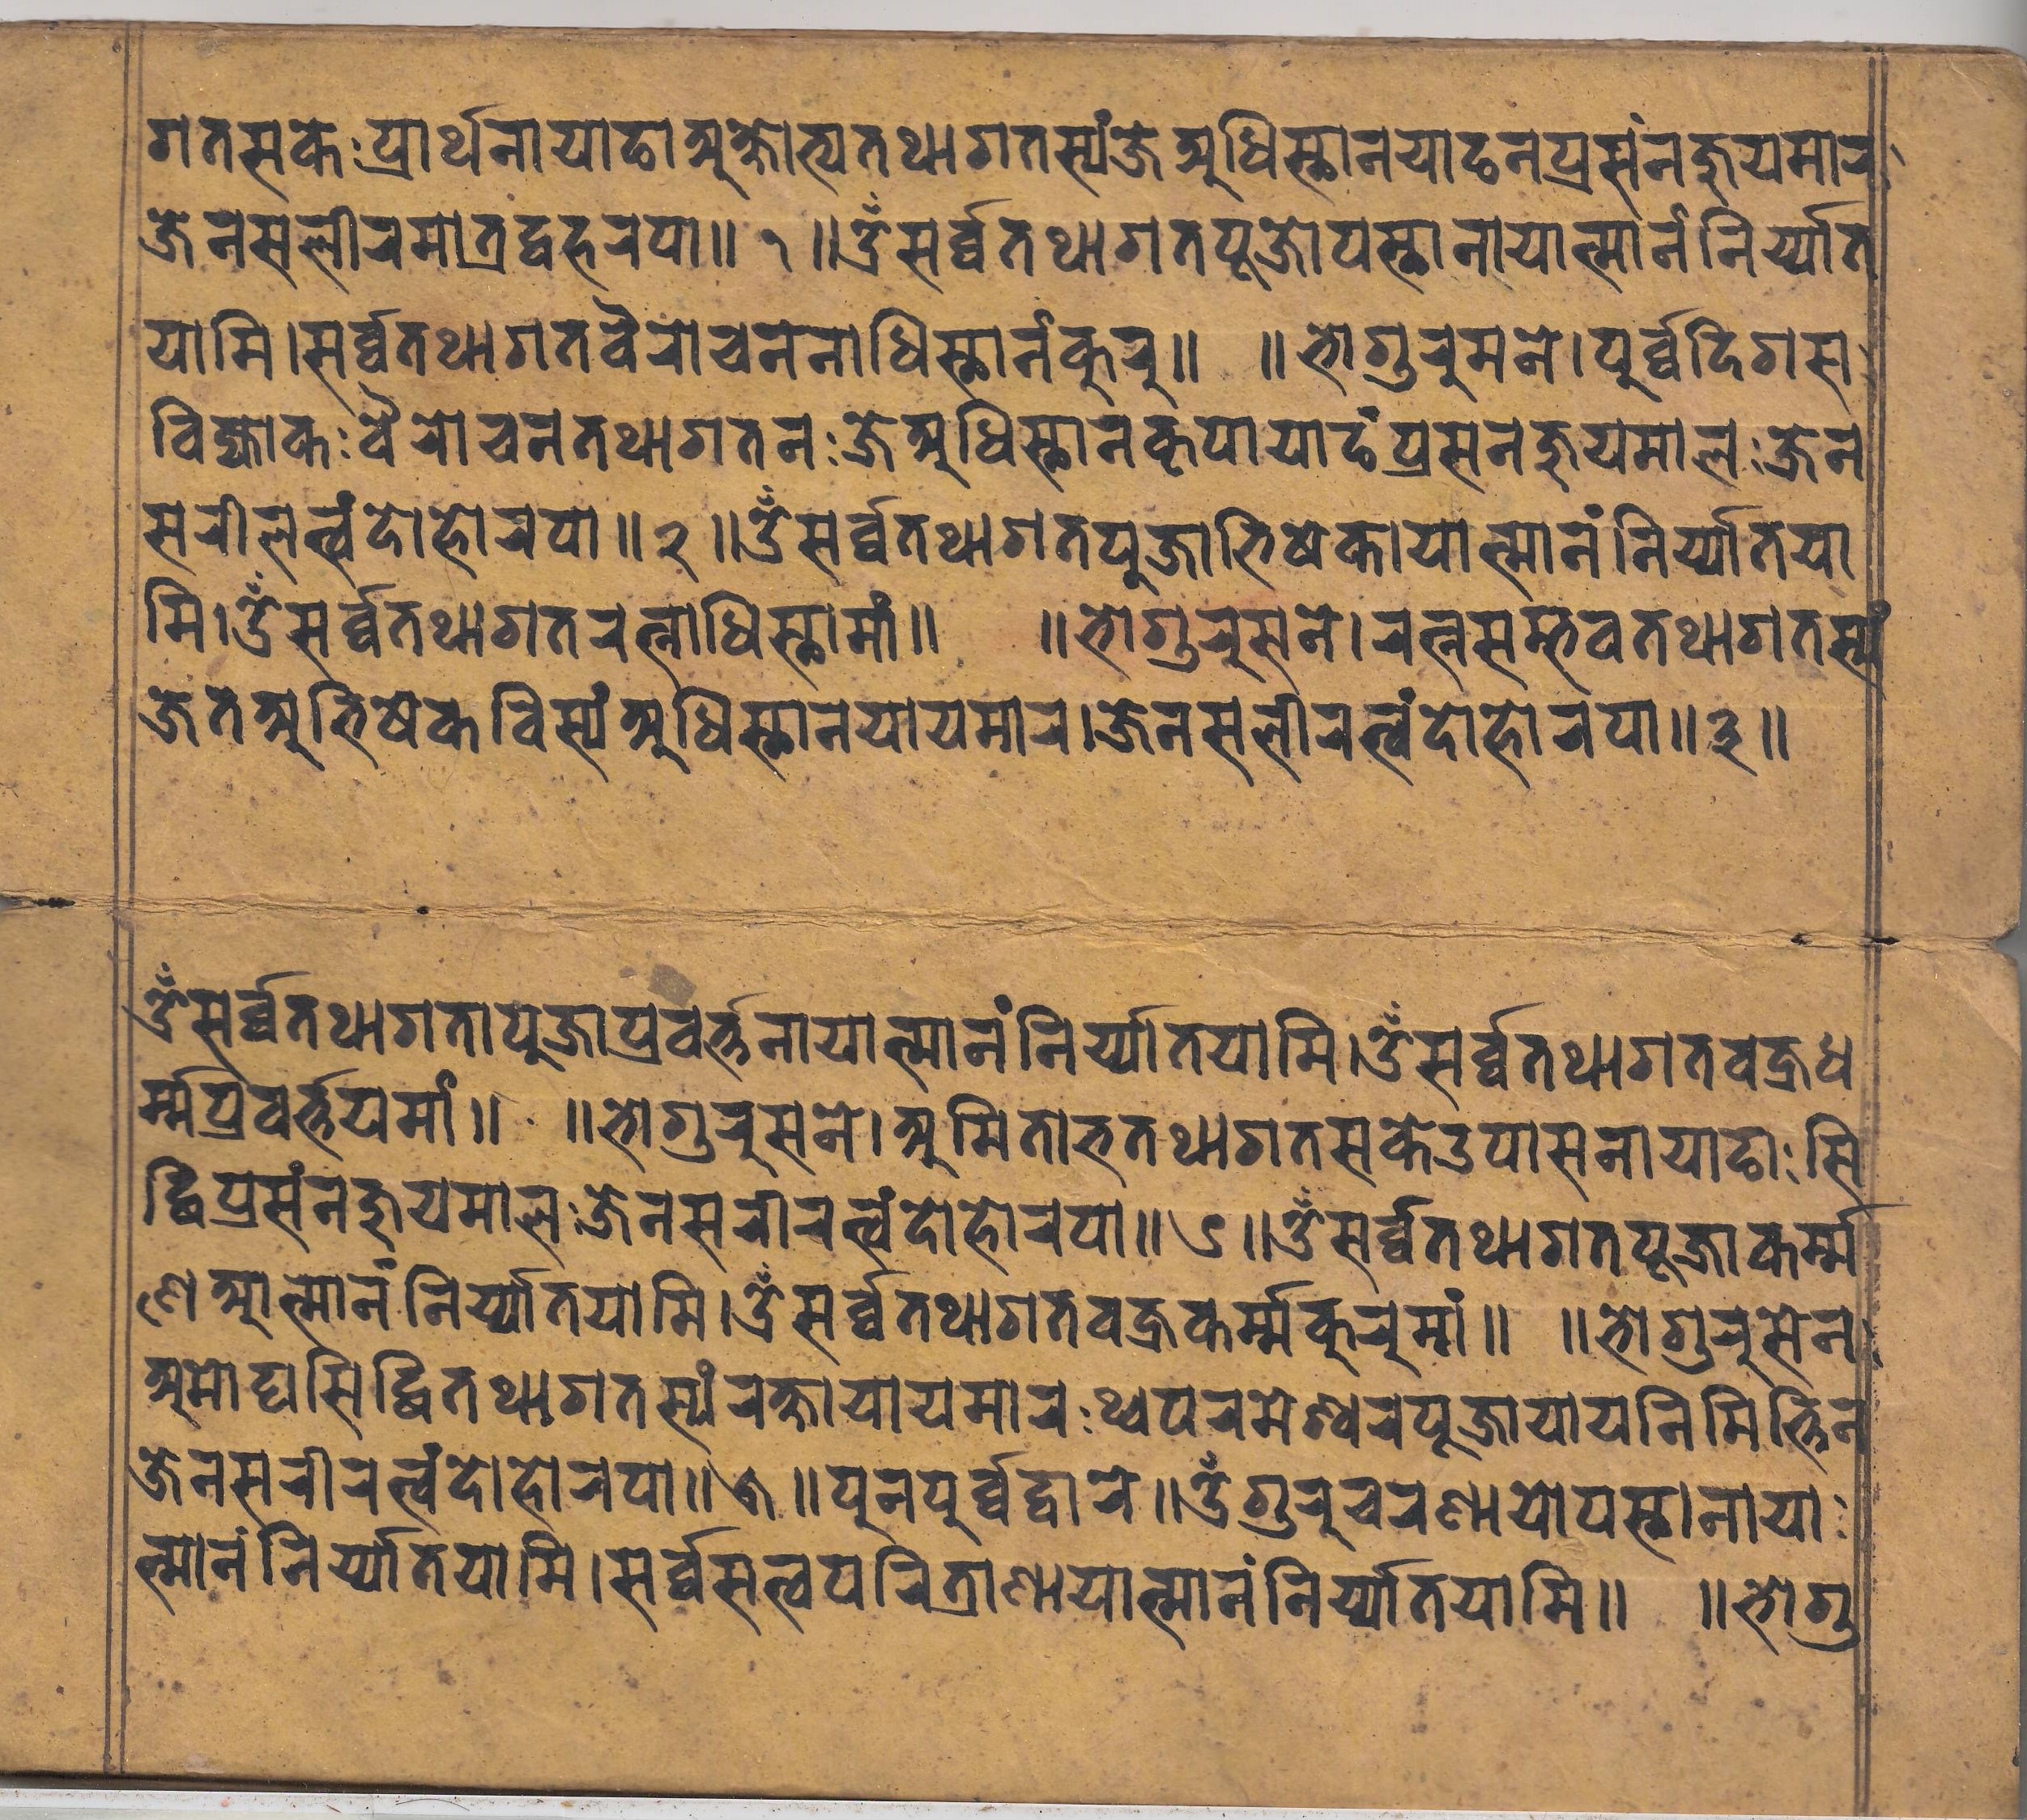 गतसकेःप्रार्थनायाङाअक्षोभ्यतथागतस्यंजेअधिस्थानयाङनप्रसंनजुयमार
जेनसलीरमात्रद्वहरपा॥१॥ॐसर्व्वतथागतपूजोपस्थानायात्मानंनिर्य्यात
यामि।सर्व्वतथागतवैरोचनेनाधिस्थानंकुरु॥ ॥भोगुरुमने।पुर्व्वदिगस
विज्याकःवैरोचनतथागतनःजेअधिस्थानकृपायाङंप्रसनजुयमालःजेन
सरीलत्वंदोहोरपा॥२॥ॐसर्व्वतथागतपुजाभिषेकायात्मानंनिर्य्यातया
मि।ॐसर्व्वतथागतरत्नाधिस्थामां॥ ॥भोगुरुसने।रत्नसम्भवतथागतस्यं
जेतअभिषेकविस्यंअधिस्थानयायमार।जेनसलीरत्वंदोहोरपा॥३॥
ॐसर्व्वतथागतापुजाप्रवर्त्तनायात्मानंनिर्य्यातयामि।ॐसर्व्वतथागतवज्रध
र्म्मप्रवर्त्तयमां॥ ॥भोगुरुसने।अमिताभतथागतसकेउपासनायाङाःसि
द्धिप्रसंनजुयमालःजेनसरीरत्वंदोहोरपा॥४॥ॐसर्व्वतथागतपूजाकर्म्म
णेआत्मानंनिर्य्यातयामि।ॐसर्व्वतथागतवज्रकर्म्मकुरुमां॥ ॥भोगुरुसेन
अमोघसिद्धितथागतस्यंरक्षायायमारःथ्वपरमेश्वरपूजायायनिमिर्त्तिन
जेनसरीरत्वंदोहोरपा॥५॥पुनपुर्व्वद्वारे॥ॐगुरुचरणायोपस्थानायाः
त्मानंनिर्य्यातयामि।सर्व्वसत्वपरित्राणायात्मानंनिर्य्यातयामि॥ ॥भोगु